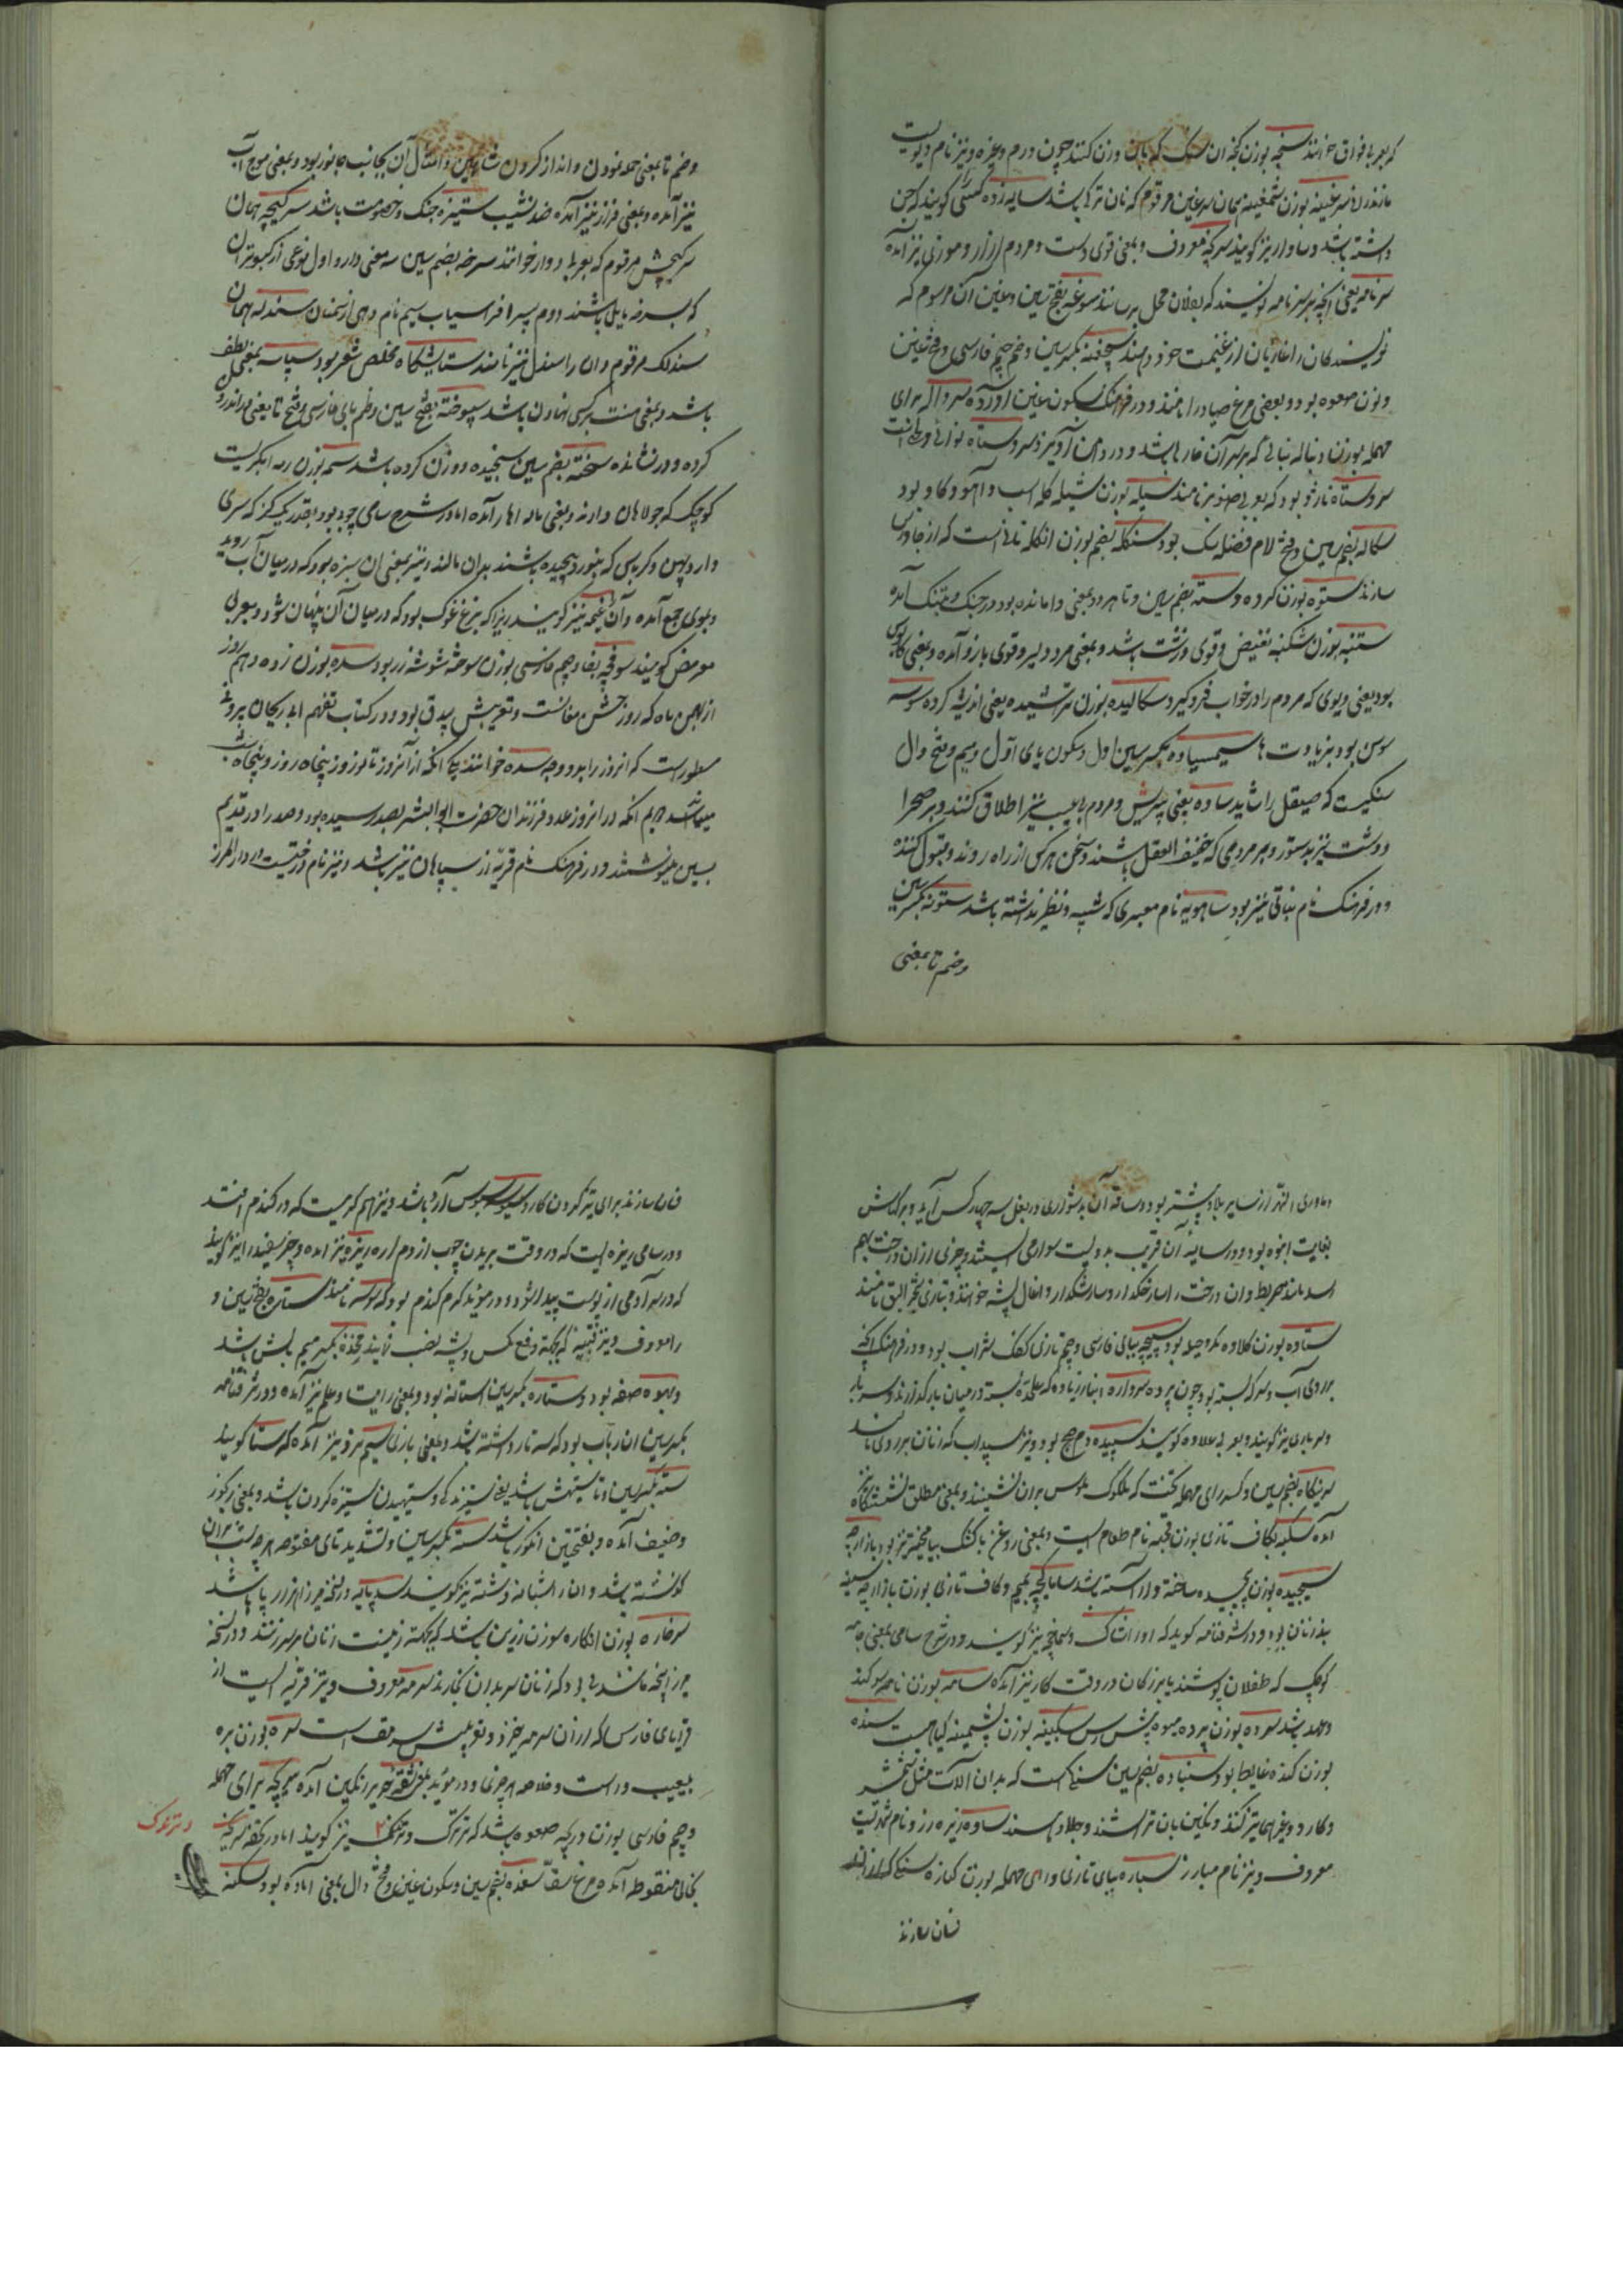 که بعربا فواق خوانند سنجه بوزن کجه ان سنک که بان وزن کنند چون درم وغیره ونیز نام دیویست
مازندران سرغینه بوزن شمغینه همان سرغین مرقوم که نان ترکی باشد سایه زده کسی کویند که جن
داشته باشد سرکه معروف وبمعنی قوی دست ومردم ازار وموزی نیز آمده
سرنامه یعنی انچه بر سر نامه نویسند که بفلان محل برسانند سوغه بفتح سین وغین آن مرسوم که
نویسندکان را غازیان از غنیمت خود دهند سچغنه بکسر سین وضم جیم فارسی وفتح غین
ونون صعوه بود وبعضی مرغ صیاد را نامند ودر فرهنک بسکون غین آورده سرواله برای
مهمله بوزن دنباله نباتی که بر سر آن خار باشد ودر دامن آویزد سروستاه نوائی
سروستاه نارنو بود که بعربی صنوبر نامند سیله بوزن شیله کله اسب واهو وکاو بود
سکاله بضم سین وفتح لام فضله سک بود سنکله بضم بوزن انکله نانی است که از جاورس
سازند ستوه بوزن کروه وسته بضم سین وتا هر دو بمعنی وامانده بود در جنک وبتنک آمده
ستنبه بوزن شکنبه نقیض وقوی وزشت باشد وبمعنی مرد دلیر وقوی بازو آمده وبمعنی کابوس
بود یعنی دیوی که مردم را در خواب فرو کیرد سکالیده بوزن تراشیده یعنی اندیشه کرده سوسه
سوس بود بزیادت ها سیمسیاده بکسر سین اول وسکون یای اول ومیم وفتح دال
سنکیست که صیقل را شاید ساده یعنی بیریش ومردم بی عیب نیز اطلاق کنند وبر صحرا
ودشت نیز بدستور وبر مردمی که خفیف العقل باشند وسخن هرکس از راه روند وقبول کننده
ودر فرهنک نام نباتی نیز بود ساهویه نام معبری که شبیه ونظیر نداشته باشد ستونه بکسر سین
وضم تا بمعنی
وضم تا بمعنی حمله نمودن وانداز کردن شاهین وامثال آن بجانب جانور بود وبمعنی موج آب
نیز آمده وبمعنی فراز نیز آمده ضد نشیب ستیزه جنک وخصومت باشد سرکیجه همان
سرکیجش مرقوم که بعربی دوار خوانند سرخه بضم سین سه معنی دارد اول نوعی از کبوتران
که بسرخه مایل باشند دوم پسر افراسیاب سیم نام دهی از سمنان سندله همان
سندلک مرقوم وان را سندل نیز نامند ستایشکاه مخلص شعر بود سپاسه بمعنی لطف
باشد وبمعنی منت بر کسی نهادن باشد سپوخته بفتح سین وضم بای فارسی وفتح تا یعنی در اندرون
کرده ودر نشانده سخته بضم سین سنجیده ووزن کرده باشد سمه بوزن رمه
کوچک که جولاهان دارند وبمعنی ماله اهار آمده اما در شرح سامی چوب بود بقدر یک کز که سری
دارد پهن وکرباسی که بنورد پیچیده باشند بدان مالند ونیز بمعنی ان سبزه بود که در میان آب روید
وبموی جمع آمده وآن غوجه نیز کویند زیرا که بزغ غوک بود که در میان آن پنهان شود وبعربی
عرمض کویند سوفچه بفا وجیم فارسی بوزن سوخته شوشه زر بود سده بوزن زده دهم روز
از بهمن ماه که روز جشن مغانست وتعریبش سدق بود ودر کتاب تفهیم ابی ریحان بیرونی
مسطورست که انروز را بدو وجه سده خوانند یکی انکه از آنروز تا نوروز پنجاه روز وپنجاه شب
میباشد دیم انکه در انروز عدد فرزندان حضرت ابو البشر بصد رسیده بود وصد را در قدیم
بسین مینوشتند ودر فرهنک نام قریه از سپاهان نیز باشد ونیز نام درختیست در دار المرز
وماوری النهر از سایر بلاد بیشتر بود وساقه آن بدشواری در بغل سه چهار کس آید وبرکهاش
بغایت انبوه بود ودر سایه آن قریب بدویست سوار می ایستد وچیزی از ان درخت بهم
ستاده بوزن کلاوه مکر وحیله بود سپیچه ببای فارسی وجیم تازی کفک شراب بود ودر فرهنک انکه
بر روی آب وسرکه بسته بود چون پرده سرواره انبار زیاده که علیحده بسته در میان بار کذارند وسربار
وسرباری نیز کویند وبعربی علاوه کویند سپیده دم صبح بود ونیز سپیداب که زنان بر روی مالند
سرینکاه بضم سین وکسر رای مهمله تخت که ملوک بر ان نشینند وبمعنی مطلق نشستنکاه نیز
آمده سکبه بکاف تازی بوزن قحبه نام طعام است وبمعنی روغن باکشک بیامیخته نیز بود
سیجیده بوزن پیچیده ساخته وآراسته باشد ساماکچه بمیم وکاف تازی بوزن بازارچه سینه
بند زنان بود ودر شرفنامه کوید که او را شاک وسماخچه نیز کویند ودر شرح سامی بمعنی جامه
کوچک که طفلان پوشند یا بزرکان در وقت کار نیز آمده سامه بوزن نامه سوکند
وعهد باشد سرده بوزن پرده میوه پیش رس سکبینه بوزن پشمینه کیاهیست سنده
بوزن کنده غایط بود سنباده بضم سین سنکی است که بدان آلات مثل شمشیر
وکارد وغیرها تیز کنند ونکین بان تراشند وجلا دهند ساوه ریزه زر ونام شهریست
معروف ونیز نام مبارز سباره ببای تازی ورای مهمله بوزن کناره سنکی که از ان
فسان سازند
فسان سازند برای تیز کردن کارد سبوسه سبوس آرد باشد ونیز اسم کرمیست که در کندم افتد
ودر سامی ریزه ایست که در وقت بریدن چوب از دم اره ریزد ونیز آمده وچیز سفید را نیز کویند
که در سر آدمی از پوست پیدا شود ودر موید کرم کندم بود که سوسه نامند ستاره بفتح سین و
را معروف ونیز پشه که بجهة دفع مکس وپشه نصب نمایند مخذه بکسر میم بالش باشد
وسهوه صفه بود وستاره بکسر سین استانه بود وبمعنی رایت وعلم نیز آمده ودر شرفنامه
بکسر سین ان رباب بود که سه تار داشته باشد وبمعنی بازی سیم نرد نیز آمده که ستا کویند
سته بکسر سین وتا ستیهش باشد یعنی ستیزندکی وستیهیدن ستیزه کردن باشد وبمعنی
وضعیف آمده وبفتحتین انکور باشد سته بکسر سین وتشدید تای مفتوحه هرچه شب بران
کذشته باشد وان را شبانه وشته نیز کویند سدپایه در نسخه میرزا هزار پا باشد
سرخاره بوزن انکاره سوزن زرین باشد که بجهة زینت زنان بر سر زنند ودر نسخه
میرزا پنجه مانندی بود که زنان سر بدان بخارند سرمه معروف ونیز قریه ایست از
قریهای فارس که از ان سرمه خیزد وتعریبش سرمق است سره بوزن بره
بیعیب وراست وخلاصه هر چیز ودر موید بمعنی شقه حریر رنکین آمده سریچه برای مهمله
وجیم فارسی بوزن دریچه صعوه باشد که ترترک وترتک نیز کویند اما در تحفه سریخه
بخای منقوطه آمده مرغ سقا سغده بضم سین وسکون غین وفتح دال بمعنی آماده بود سکنه